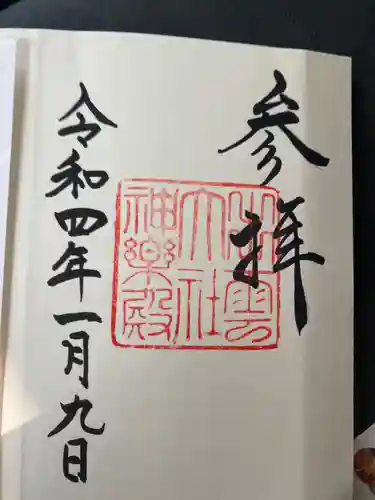 参拝
出雲
大社
神樂殿
令和四年一月九日